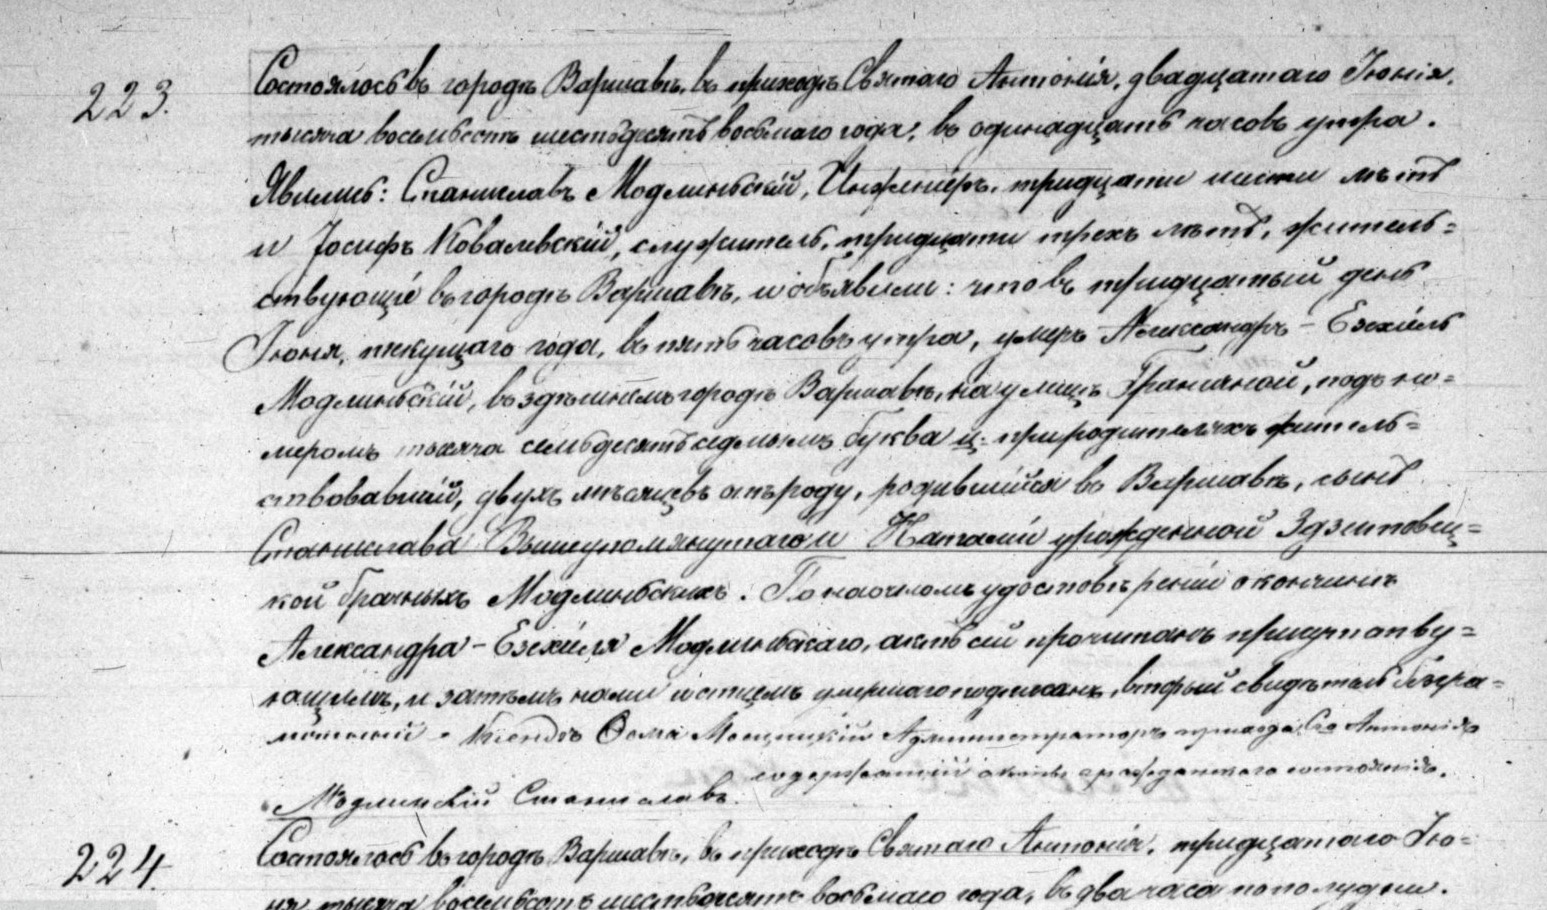 223.
Состоялось въ городѣ Варшавѣ, въ приходѣ Святаго Антонія, двадцатаго Іюнія,
тысяча восемьсотъ шестьдесятъ восьмаго года, въ одинадцать часовъ утра.
Явились: Станиславъ Модлиньскій, Инженеръ, тридцати шести лѣтъ
и Іосифъ Ковалевскій, служитель, тридцати трехъ лѣтъ, житель=
ствующіе въ городѣ Варшавѣ, и объявили: что въ тридцатый день
Іюня, текущаго года, въ пять часовъ утра, умеръ Александръ-Езехіель
Модлиньскій, въ здѣшнемъ городѣ Варшавѣ, на улицѣ Граничной, подъ но=
меромъ тысяча семьдесятъ седмымъ буква ц. при родителяхъ житель=
ствовавшій, двухъ мѣсяцевъ отъ роду, родившійся въ Варшавѣ, сынъ
Станислава Вышеупомянутаго и Наталіи урожденной Здзитовец=
кой брачныхъ Модлиньскихъ. По наочномъ удостовѣреніи о кончинѣ
Александра-Езехіеля Модлиньскаго, актъ сей прочитанъ присутству=
ющимъ, и затѣмъ нами и отцемъ умершаго подписанъ, вторый свидѣтель безгра=
мотный. Ксендзъ Ѳома Администраторъ прихода Св Антонія
содержащій акты гражданскаго состоянія.
Модлинскій Станиславъ.
224.
Состоялось въ городѣ Варшавѣ, въ приходѣ Святаго Антонія, тридцатаго Ію=
ня тысяча восемьсотъ шестьдесятъ восьмаго года, въ два часа пополудни.